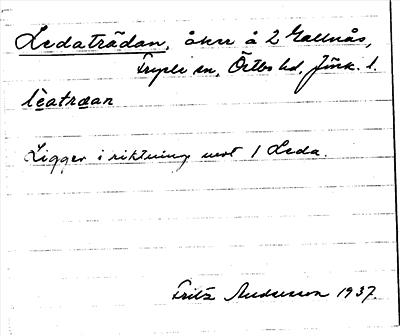 Ledaträdan, åker å 2 Gallnås,
Fryele sn, Östbo hd, Jönk. l.
lèatrædan
Ligger i riktning mot 1 Leda.
Fritz Andersson 1937.